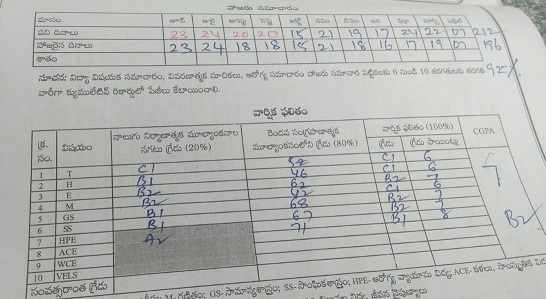 హాజరు సమాచారం
మాసం జూన్ జులై ఆగష్టు సెప్టె అక్టో నవం డిసెం జన ఫిబ్ర మార్చి ఏప్రిల్
పని దినాలు 23 24 20 20 15 21 19 17 24 22 07 212
హాజరైన దినాలు 23 24 18 18 15 21 18 16 17 19 07 196
శాతం 92%
సూచన: విద్యా విషయక సమాచారం, వివరణాత్మక సూచికలు, ఆరోగ్య సమాచారం హాజరు సమాచార పట్టికలకు 6 నుండి 10 తరగతులకు తరగతి
వారీగా క్యుములేటివ్ రికార్డులో పేజీలు కేటాయించాలి.
వార్షిక ఫలితం
క్ర. సం. విషయం నాలుగు నిర్మాణాత్మక మూల్యాంకనాల సగటు గ్రేడు (20%) రెండవ సంగ్రహణాత్మక మూల్యాంకనంలోని గ్రేడు (80%) వార్షిక ఫలితం (100%) గ్రేడు గ్రేడు పాయింట్లు CGPA
1 T C1 52 C1 6
2 H B1 46 C1 6
3 E B2 62 B2 7
4 M B2 42 C1 6
5 GS B1 68 B2 7
6 SS B1 67 B2 7
7 HPE A2 71 B1 8
8 ACE
9 WCE
10 VELS
7
B2
సంవత్సరాంత గ్రేడు
M- గణితం; GS- సామాన్యశాస్త్రం; SS- సాంఘికశాస్త్రం; HPE- ఆరోగ్య వ్యాయామ విద్య, ACE- కళలు, సాంస్కృతిక విద
విలువల విద్య, జీవన నైపుణ్యాలు